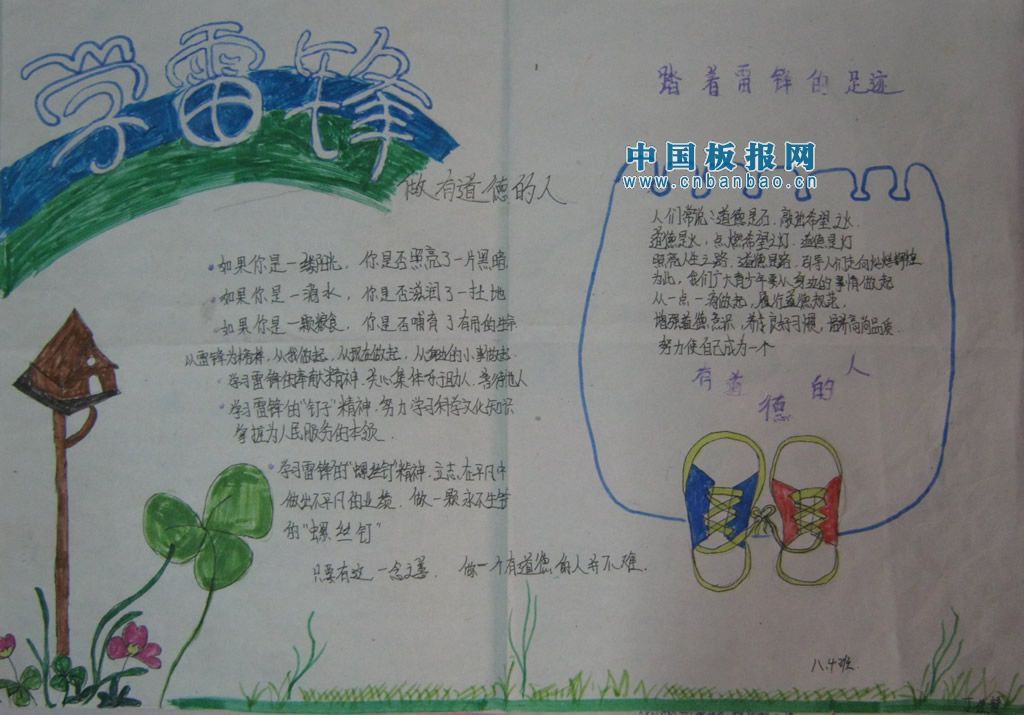 学雷锋
做有道德的人
如果你是一缕阳光，你是否照亮了一片黑暗
如果你是一滴水，你是否滋润了一片土地
如果你是一颗粮食，你是否哺育了有用的生命
从雷锋为榜样，从我做起，从现在做起，从身边的小事做起
学习雷锋的奉献精神.关心集体.乐于助人.善待他人
学习雷锋的"钉子"精神.努力学习科学文化知识
掌握为人民服务的本领.
学习雷锋的"螺丝钉"精神.立志在平凡中
做出不平凡的业绩.做一颗永不生锈
的"螺丝钉"
只要有这一念之善.做一个有道德的人并不难.
踏着雷锋的足迹
中国板报网
www.cnbanbao.cn
人们常说：道德是石.敲出希望之火.
道德是火，点燃希望之灯.道德是灯
照亮人生之路.道德是路.引导人们走向
为此，我们广大青少年要从身边的事情做起
从一点一滴做起，履行道德规范，
增强道德意识，养良好习惯，培养高尚品质.
努力使自己成为一个
有道德的人
八.4班.